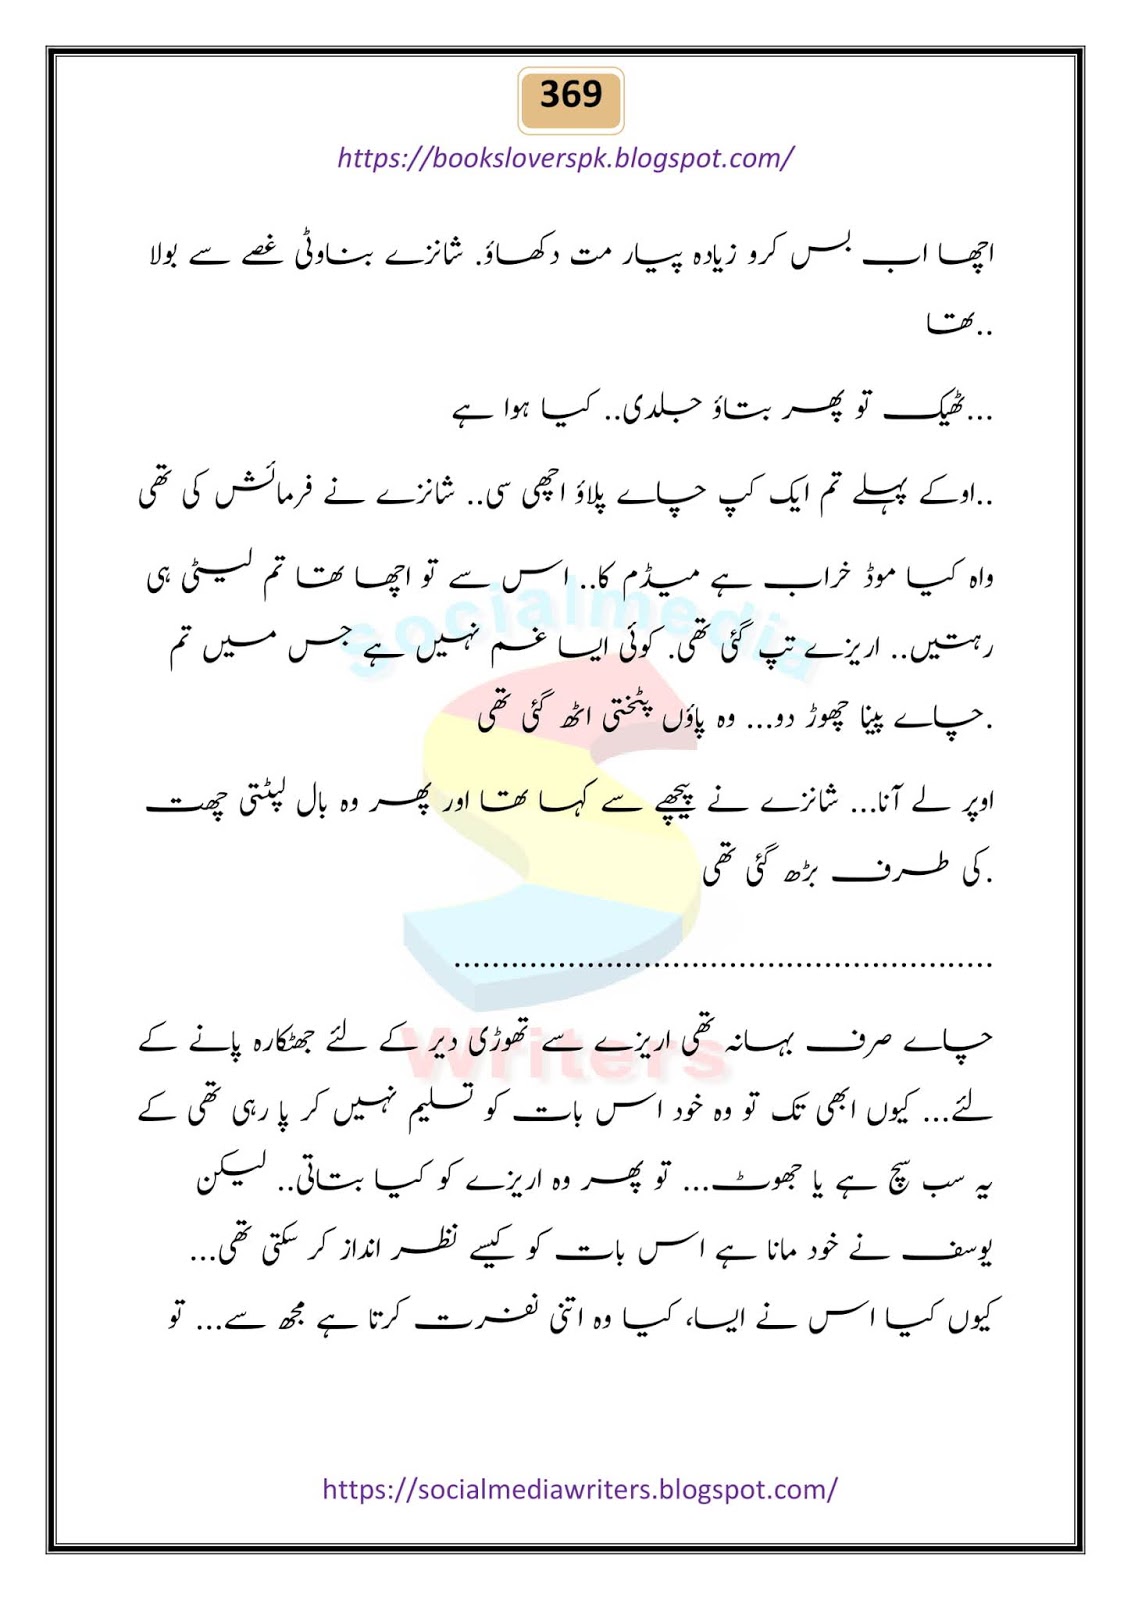 369
https://booksloverspk.blogspot.com/
اچھا اب بس کرو زیادہ پیار مت دکھاؤ. شانزے بناوٹی غصے سے بولا
تھا..
ٹھیک تو پھر بتاؤ جلدی.. کیا ہوا ہے...
اوکے پہلے تم ایک کپ چاے پلاؤ اچھی سی.. شانزے نے فرمائش کی تھی..
واہ کیا موڈ خراب ہے میڈم کا.. اس سے تو اچھا تھا تم لیٹی ہی
رہتیں.. اریزے تپ گئی تھی. کوئی ایسا غم نہیں ہے جس میں تم
چاے پینا چھوڑ دو... وہ پاؤں پٹختی اٹھ گئی تھی.
اوپر لے آنا... شانزے نے پیچھے سے کہا تھا اور پھر وہ بال لپٹتی چھت
کی طرف بڑھ گئی تھی.
......................................................
چاے صرف بہانہ تھی اریزے سے تھوڑی دیر کے لئے جھٹکارہ پانے کے
لئے... کیوں ابھی تک تو وہ خود اس بات کو تسلیم نہیں کر پا رہی تھی کے
یہ سب سچ ہے یا جھوٹ... تو پھر وہ اریزے کو کیا بتاتی.. لیکن
یوسف نے خود مانا ہے اس بات کو کیسے نظر انداز کر سکتی تھی...
کیوں کیا اس نے ایسا، کیا وہ اتنی نفرت کرتا ہے مجھ سے... تو
Socialmedia
Writers
https://socialmediawriters.blogspot.com/